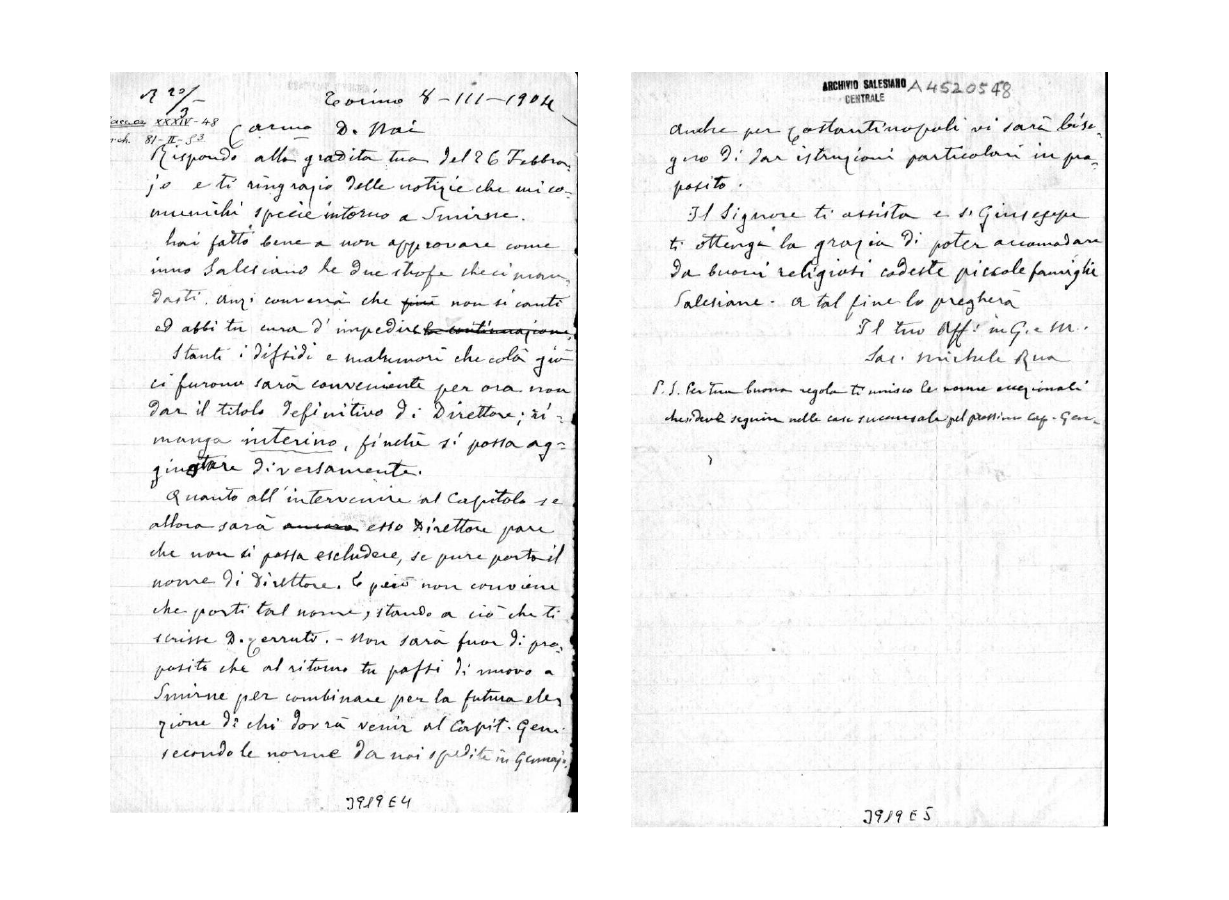 R 20/3
Torino 8-III-1904
XXXIV-48
81-II-53
Carmo D. Nai
Rispondo alla gradita tua del 26 Febbra-
jo e ti ringrazio delle notizie che mi co-
munichi specie intorno a Smirne.
hai fatto bene a non approvare come
inno Salesiano le due strofe che ci man-
dasti. Anzi converrà che non si canti
ed abbi tu cura d'impedire la continuazione.
Stanti i dissidi e malumori che colà già
ci furono sarà conveniente per ora non
dar il titolo definitivo di Direttore; ri-
manga interino, finchè si possa ag-
giustare diversamente.
Quanto all'intervenire al Capitolo se
allora sarà ancora esso Direttore pare
che non si possa escludere, se pure porta il
nome di Direttore. E però non conviene
che porti tal nome, stando a ciò che ti
scrisse D. Cerruti. - Non sarà fuor di pro-
posito che al ritorno tu passi di nuovo a
Smirne per combinare per la futura ele-
zione di chi dovrà venir al Capit. Gen.
secondo le norme da noi spedite in Gennajo.
J919E4
ARCHIVIO SALESIANO
CENTRALE
A4520548
Anche per Costantinopoli vi sarà biso-
gno di dar istruzioni particolari in pro-
posito.
Il Signore ti assista e S. Giuseppe
ti ottenga la grazia di poter accomodare
da buoni religiosi codeste piccole famiglie
Salesiane. A tal fine lo pregherà
Il tuo Aff. in G. e M.
Sac. Michele Rua
P.S. Per tua buona regola ti unisco le norme eccezionali
da seguire nelle case succursale pel prossimo Cap. Gen.
J919E5